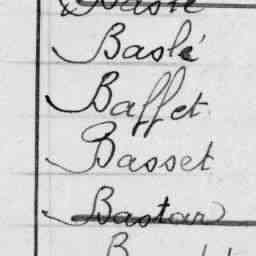 Baslé
Baffet
Basset
Bastar